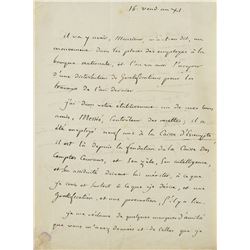 16 vend. an XI
il y a un mois, Monsieur, m'a-t-on dit, un
mouvement dans les places des employés à la
banque nationale, et l'on va s'occuper
d'une distribution de Gratifications pour les
travaux de l'an dernier
j'ai dans votre établissement un de mes bons
amis, Contrôleur des recettes; il a
été employé neuf ans à la Caisse d'Escompte;
il est là depuis la fondation de la Caisse des
Comptes Courants, et son zèle, son intelligence
et son assiduité doivent lui mériter, à ce que
je crois et surtout à ce que je désire, et une
Gratification, et une promotion, s'il y a lieu.
je me réclame de quelques marques d'amitié
que vous m'avez données et de celles que je